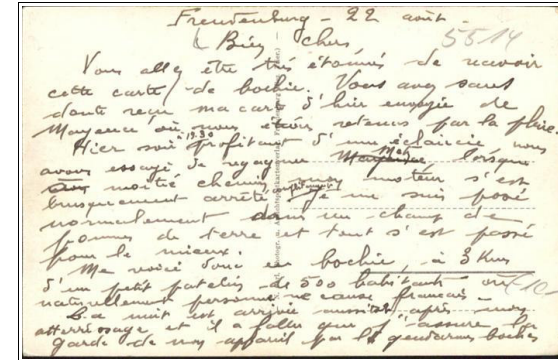 Freudenburg - 22 août -
Bien chers, 5514
Vous allez être très étonnés de recevoir
cette carte de bochie. Vous avez sans
doute reçu ma carte d'hier envoyée de
Mayence où nous étions retenus par la pluie.
Hier soir 19.30 profitant d'une éclaircie nous
avons essayé de regagner lorsque
moitié chemin mon moteur s'est
brusquement arrêté. Je me suis posé
normalement dans un champ de
pommes de terre et tout s'est passé
pour le mieux.
Me voici donc en bochie, à 3 Kms
d'un petit patelin de 500 habitants où
naturellement personne ne cause français -
La nuit est arrivée aussitôt après mon
atterrissage et il a fallu que j'assure la
garde de mon appareil par les gendarmes boches